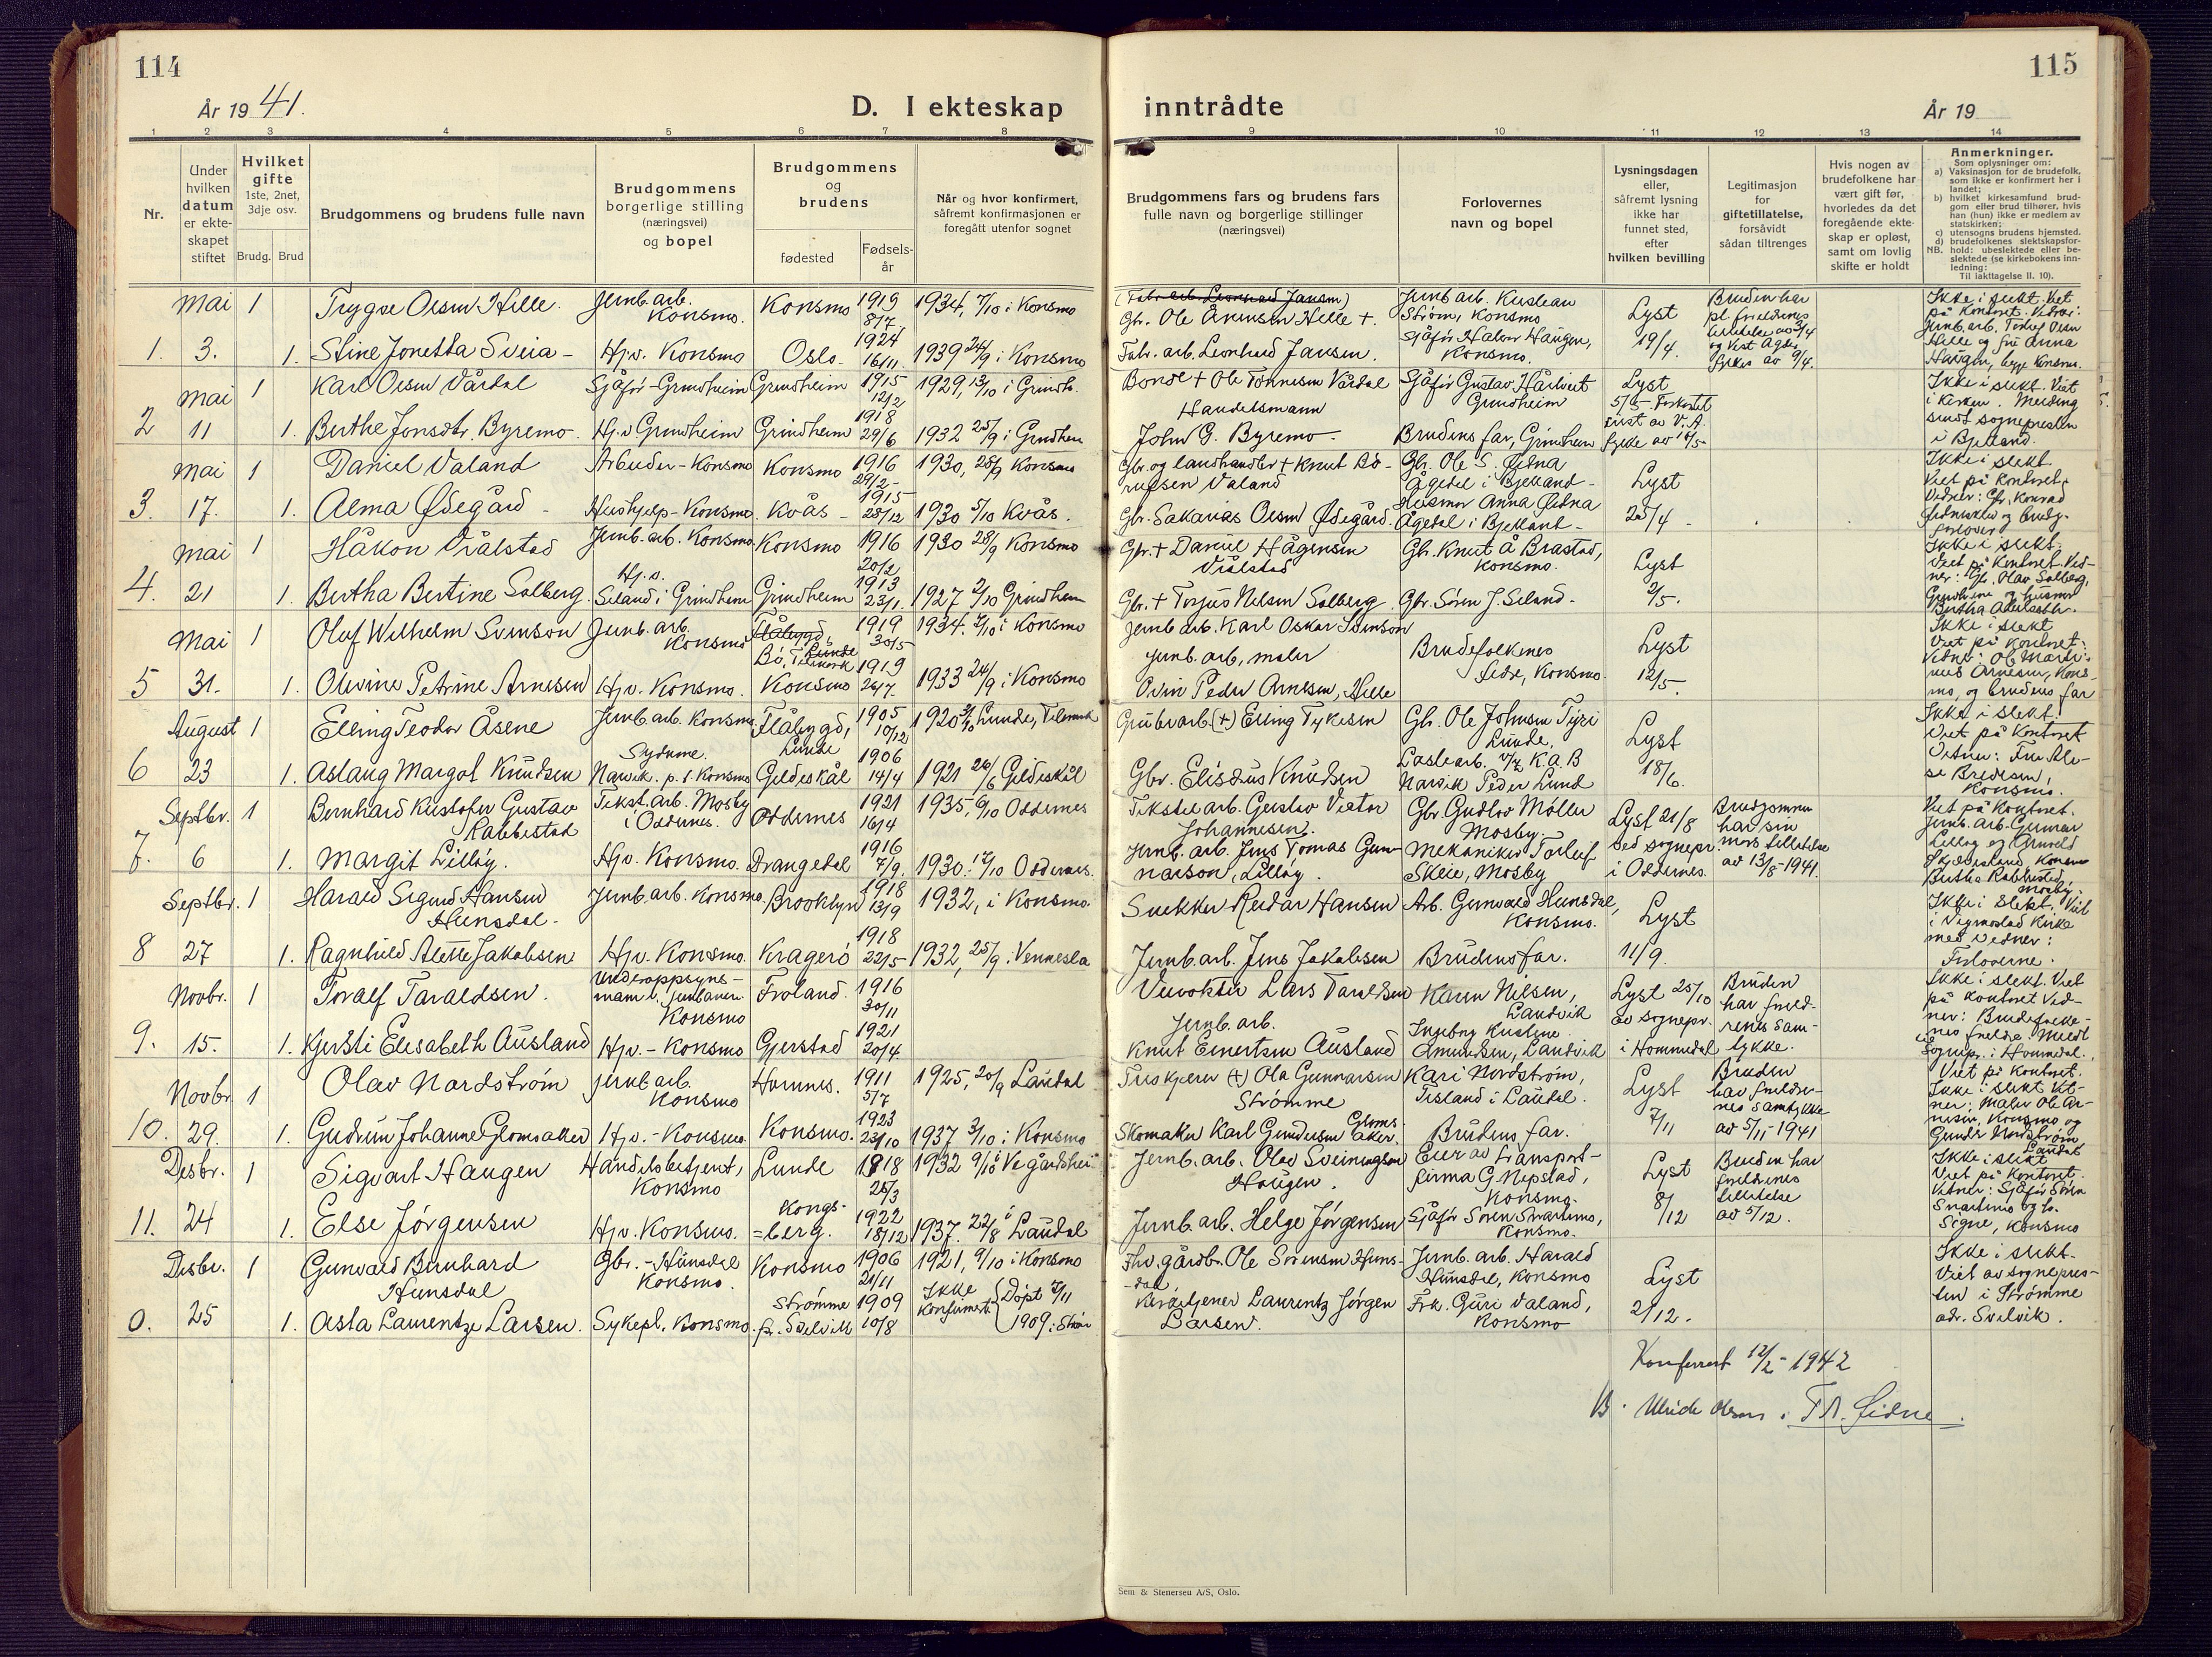 114
År 1941.
D. I ekteskap
1 2 3 4 5 6 7 8
Nr.
Under hvilken datum er ekte-skapet stiftet
Hvilket gifte
1ste, 2net, 3dje osv.
Brudg. Brud
Brudgommens og brudens fulle navn
Brudgommens borgerlige stilling (næringsvei) og bopel
Brudgommens og brudens
fødested
Fødsels-år
Når og hvor konfirmert, såfremt konfirmasjonen er foregått utenfor sognet
Mai 1 Trygve Olsen Hille. Jernb.arb. Konsmo. Konsmo 1919 8/7 1934, 7/10 i Konsmo
1. 3. 1. Stine Jonetta Sveia - Hj.v. Konsmo Oslo. 1924 16/11. 1939 24/9 i Konsmo
Mai 1 Karl Olsen Vårdal Sjåfør - Grindheim Grindheim 1915 12/2 1929, 13/10 i Grindh.
2 11 1. Berthe Jonsdtr. Byremo. Hj.v Grindheim Grindheim 1918 29/6 1932 25/9 i Grindhem
Mai 1 Daniel Valand Arbeider - Konsmo Konsmo 1916 29/2- 1930, 28/9 Konsmo
3. 17. 1. Alma Ødegård - Hushjelp - Konsmo. Kvås - 1915 28/12 1930 5/10 Kvås.
Mai 1 Håkon Vrålstad Jernb. arb. Konsmo. Konsmo 1916 20/2 1930 28/9 Konsmo
4. 21 1. Bertha Bertine Solberg Hj.v. Seland i Grindheim Grindheim 1913 23/1. 1927 2/10 Grindhem
Mai 1 Oluf Wilhelm Svenson Jernb. arb. Konsmo Flåbygd, Lunde Bø, Telemark 1919 30/5 1934. 7/10 i Konsmo
5 31. 1. Olivine Petrine Arnesen Hj.v. Konsmo. Konsmo 1919 26/7. 1933 24/9 i Konsmo
August 1 Elling Teodor Åsene Jernb. arb. Konsmo. Flåbygd, Lunde 1905 10/12 1920 Lunde, Telemark
6 23 1. Aslaug Margot Knudsen Sydame. Narvik. p. t. Konsmo Geldeskål 1906 14/4 1921 26/6 Geldeskål
Septbr. 1 Bernhard Kristofer Gustav Rabbestad Tekst. arb. Mosby i Oddernes. Oddernes 1921 16/4 1935, 6/10 Oddernes
7. 6 1. Margit Lilløy. Hj.v. Konsmo. Drangedal 1916 7/9. 1930. 12/10 Oddernes.
Septbr. 1 Harald Sigurd Hansen Hunsdal. Jernb. arb. Konsmo. Brooklyn 1918 13/9 1932, i Konsmo.
8 27 1. Ragnhild Alette Jakobsen Hj.v. Konsmo. Kragerø 1918 22/5 1932, 25/9 i Vennesla
Novbr. 1 Toralf Taraldsen. Underoppsyns-mann v. jernbanen Konsmo Froland. 1916 30/11
9. 15. 1. Kjersti Elisabeth Ausland Hj.v. - Konsmo Gjerstad 1921 20/4
Novbr 1 Olav Nordstrøm Jernb arb. Konsmo Hornnes. 1911 5/7 1925, 20/9 Laudal
10. 29. 1. Gudrun Johanne Glomsaker Hj.v. - Konsmo. Konsmo. 1923 23/10 1937 3/10 i Konsmo
Desbr. 1 Sigvart Haugen Handelsbetjent, Konsmo Lunde 1918 28/3 1932 9/10 i Vegårdshei
11. 24 1. Else Jørgensen Hj.v. Konsmo. Kongs-=berg. 1922 18/12 1937. 22/8 i Laudal
Desbr. 1 Gunvald Bernhard Hunsdal Gbr. - Hunsdal Konsmo. Konsmo 1906 21/11 1921, 9/10 i Konsmo
0. 25 1. Aesta Laurentze Larsen. Sykepl. Konsmo. Strømme pr. Svelvik 1909 10/8 Ikke konfirmert. Døpt 7/11 1909 i Strøm
115
inntrådte
År 19
9 10 11 12 13 14
Brudgommens fars og brudens fars fulle navn og borgerlige stillinger (næringsvei)
Forlovernes navn og bopel
Lysningsdagen eller, såfremt lysning ikke har funnet sted, efter hvilken bevilling
Legitimasjon for giftetillatelse, forsåvidt sådan tiltrenges
Hvis nogen av brudefolkene har vært gift før, hvorledes da det foregående ekte-skap er opløst, samt om lovlig skifte er holdt
Anmerkninger.
Som oplysninger om:
a) Vaksinasjon for de brudefolk, som ikke er konfirmert her i landet;
b) hvilket kirkesamfund brud-gom eller brud tilhører, hvis han (hun) ikke er medlem av statskirken;
c) utensogns brudens hjemsted.
d) brudefolkenes slektskapsfor-hold: ubeslektede eller be-slektede (se kirkebokens inn-ledning:
NB.
Til iakttagelse II. 10).
(Fabr. arb. Leonhard Jansen)
Gbr. Ole Arnesen Hille +. Jernb arb. Kristian Strøm, Konsmo Lyst 19/4. Bruden har pl. foreldrenes tillatelse av 9/4 og Vest Agder fylkes av 9/4. Ikke i slekt. Viet på kontoret. Vitner: Jernb. arb. Torlef Olsen Hille og fru Anna Haugen, begge Konsmo.
Fabr. arb. Leonhard Jansen. Sjåfør Halvor Haugen, Konsmo.
Bonde + Ole Tønnesen Vårdal Sjåfør Gustav Hårtveit Grindheim Lyst 5/5 - Forkortet frist av V. A. fylke av 10/5- Ikke i slekt. Viet i kirken. Melding sendt sognepresten i Bjelland.
Handelsmann John G. Byremo. Brudens far, Grindhem
Gbr. og landhandler + Knut Bø-rufsen Valand Gbr. Ole S. Øidna Ågedal i Bjelland - Lyst 20/4. Ikke i slekt. Viet på kontoret. Vitner: Gbr. Konrad
Gbr. Sakarias Olsen Ødegård. Husmor Anna Øidna Ågedal i Bjelland -
Gbr. + Daniel Hågensen Vrålstad Gbr. Knut Å Brastad, Konsmo. Lyst 2/5. Ikke i slekt. Viet på kontoret. Vit-ner: Gbr. Olav Solberg, Grindheim og husmor
Gbr. + Torjus Nelsen Solberg. Gbr. Søren J. Seland.
Jernb arb. Karl Oskar Svenson Brudefolkenes fedre, Konsmo. Lyst 12/5. Ikke i slekt Viet på kontoret: Vitner: Ole Marti-nus Arnesen, Kons-mo, og brudens far
Jernb. arb, maler Ovin Peder Arnesen, Hille
Grubearb (+) Elling Tykesen Gbr. Ole Johnsen Tyri Lunde. Lyst 18/6. Ikke i slekt. Viet på kontoret Vitner: Fru Ali-se Bredesen, Konsmo.
Gbr. Elisæus Knudsen Lastearb. v/ K.A.B Narvik Peder Lund
Tekstilarb. Gustav Viktor Johannesen. Gbr. Gudlov Møller Mosby. Lyst 21/8 ved sognepr. i Oddernes. Brudgommen har sin mors tillatelse av 13/8-1941. Viet på kontoret. Jernb. arb. Gunnar Lilløy og Arnold Skjævesland, Konsmo Bertha Rabbestad, Mosby.
Jernb. arb. Jens Tomas Gun-narson, Lilløy. Mekaniker Torleif Skeie, Mosby
Snekker Reidar Hansen Arb. Gunvald Hunsdal, Konsmo. Lyst 11/9. Ikke i slekt. Viet i Vigmostad kirke med vitner: Forloverne.
Jernb. arb. Jens Jakobsen Brudens far.
Veivokter Lars Taraldsen Karen Nilsen, Landvik Lyst 25/10 av sognepr. i Hommedal Bruden har foreld-renes sam-tykke. Ikke i slekt. Viet på kontoret Vit-ner: Brudefolke-nes foreldre. Meldt sognepr. i Hommedal.
Jernb. arb. Knut Einertsen Ausland Ingeborg Kristine Amundsen, Landvik
Treskjærer (+) Ola Gunnarsen Strømme Kari Nordstrøm, Tisland i Laudal. Lyst 7/11 Bruden har foreldre-nes samtykke av 5/11-1941 Viet på kontoret. Ikke i slekt Vit-ner: Maler Ole Ar-nesen, Konsmo og Gunda Nordstrøm, Laudal
Skomaker Karl Gundersen Gloms-aker. Brudens far.
Jernb. arb. Olav Sveinungson Haugen. Eier av transport-firma G. Nepstad, Konsmo. Lyst 8/12 Bruden har foreldrenes tillatelse av 5/12. Ikke i slekt Viet på kontoret. Vitner: Sjåfør Søren Snartemo og fr. Signe, Konsmo
Jernb. arb. Helge Jørgensen Sjåfør Søren Snartemo, Konsmo.
Fhv. gårdbr. Ole Sørensen Huns-dal. Jernb. arb. Harald Hunsdal, Konsmo Lyst 2/12. Ikke i slekt. Viet av sognepres-ten i Strømme adr. Svelvik.
Kirketjener Laurentz Jørgen Larsen. Frk. Guri Valand, Konsmo
Konferert 12/2-1942
Sem & Stenersen A/S, Oslo.